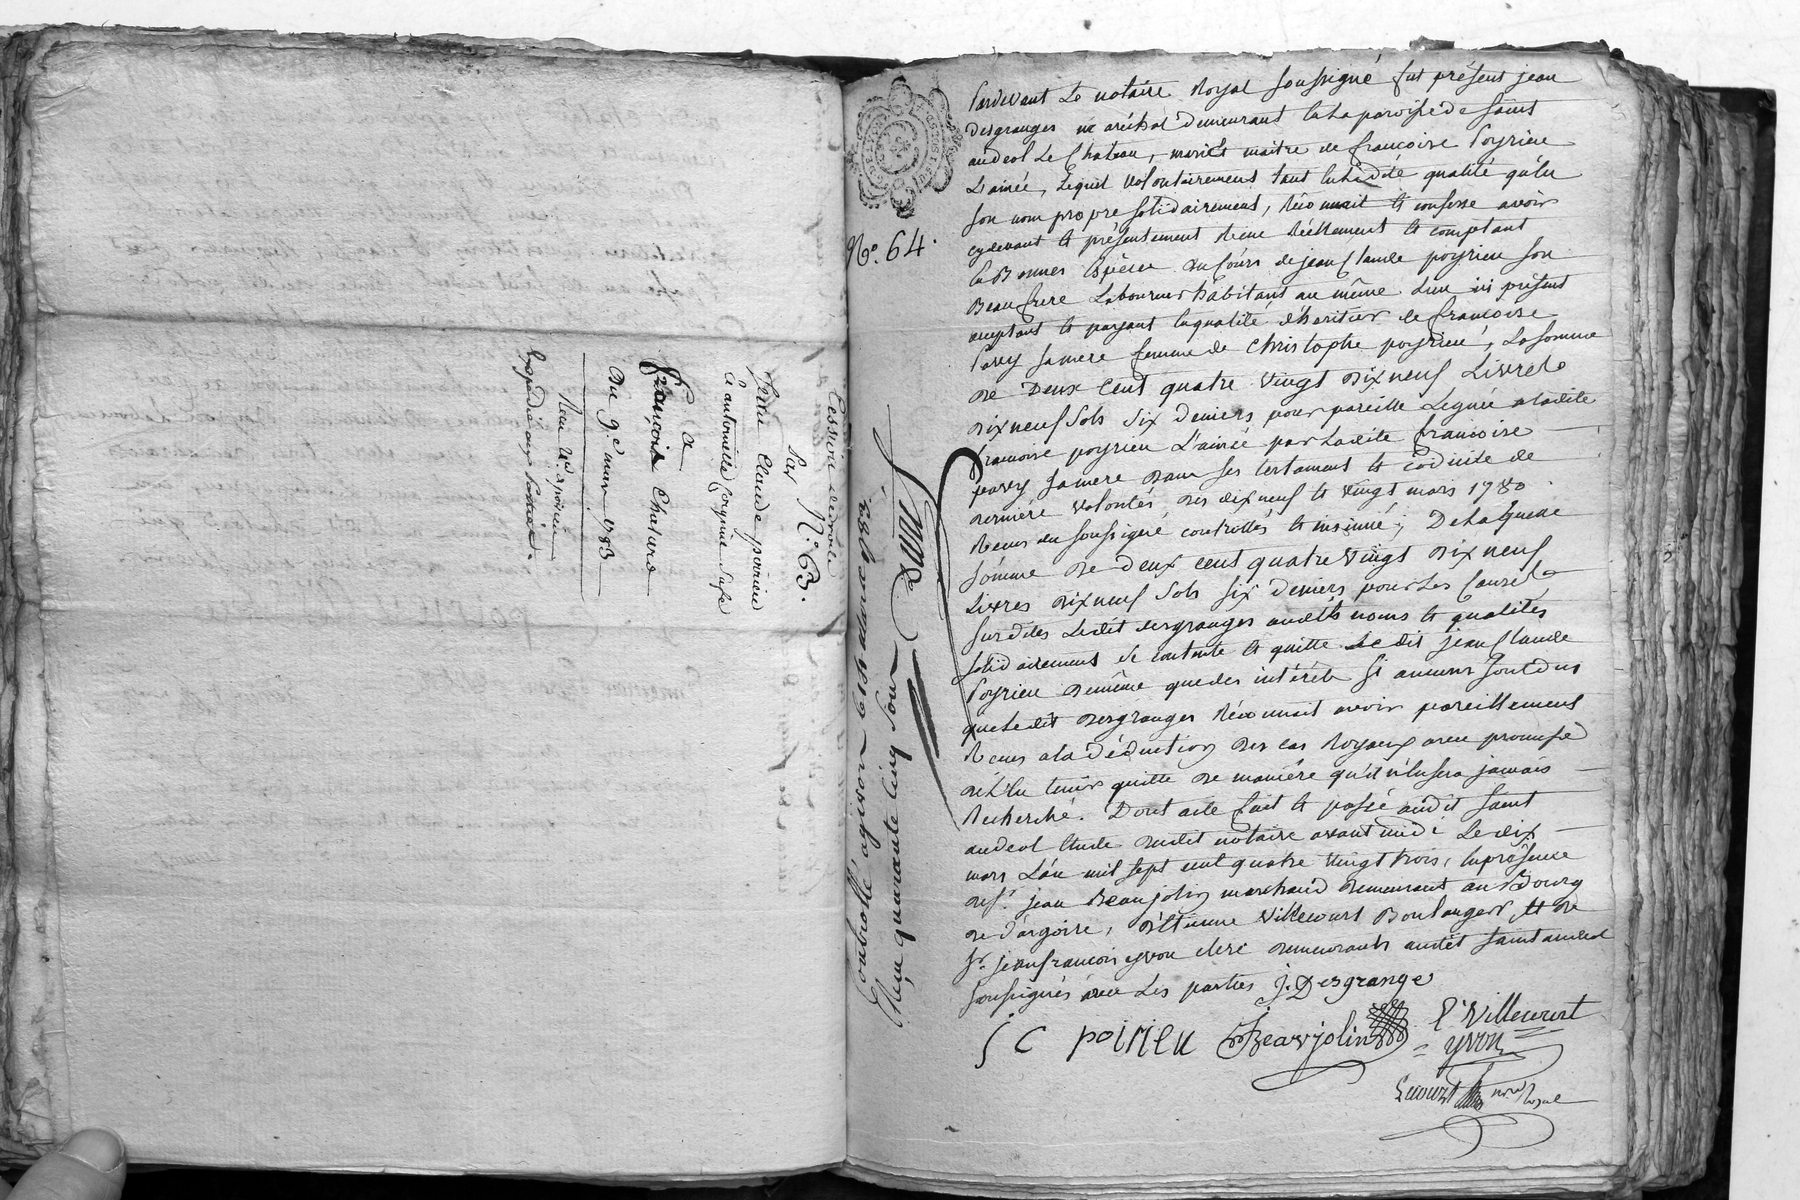 Cession de droits
Par N.° 63.
Jean Claude poirieu
Ca
françois Chatard
Du 9.e mars 1783
N°. 64.
Pardevant Le notaire Royal soussigné fut présent jean
Desgranges maréchal Demeurant en la paroisse de saint
andeol Le Chateau, mari et maitre de francoise Poyrieu
L'ainée, Lequel volontairement tant en ladite qualité qu'en
son nom propre solidairement, Réconnait et confesse avoir
cydevant et présentement Receu Réellement et comptant
en Bonnes Espèces du Cours de jean Claude poyrieu son
Beau frere Laboureur habitant au même Lieu ici présent
acceptant et payant en qualité d'héritier de francoise
Pavy sa mere femme de Christophe poyrieu, La somme
De Deux Cent quatre vingt Dix neuf Livres
Dix neuf Sols Six Deniers pour pareille Leguée a ladite
francoise poyrieu L'ainée par Ladite francoise
pavy sa mere Dans ses testament et codicile de
derniere volontés, des dix neuf et vingt mars 1780
Receus du soussigné controllés et insinué; De laquelle
somme De Deux cent quatre vingt Dix neuf
Livres Dix neuf Sols Six Deniers pour Les Causes
susdites Ledit desgranges audits noms et qualités
solidairement se contente et quitte Le dit jean Claude
Poyrieu De même que des intérêts si aucuns sont dus
que Ledit Desgranges Réconnait avoir pareillement
Receus a la Déduction des cas Royaux avec promesse
de L'en tenir quitte De maniére qu'il n'en sera jamais
Recherché. Dont acte fait et passé audit saint
andeol Etude dudit notaire avant midi Le dix
mars L'an mil sept cent quatre vingt trois, en présence
de sr. jean Beaujolin marchand Demeurant au Bourg
De d'argoire, D'Etienne Villecourt Boulanger, et de
sr. jean francois yvon clerc Demeurants audit saint andeol
soussignés avec Les parties J. Desgrange
J C poirieu Beaujolin E. Villecourt
yvon
Controllé a givors le 22 mars 1783.
Receu quarante cinq sous